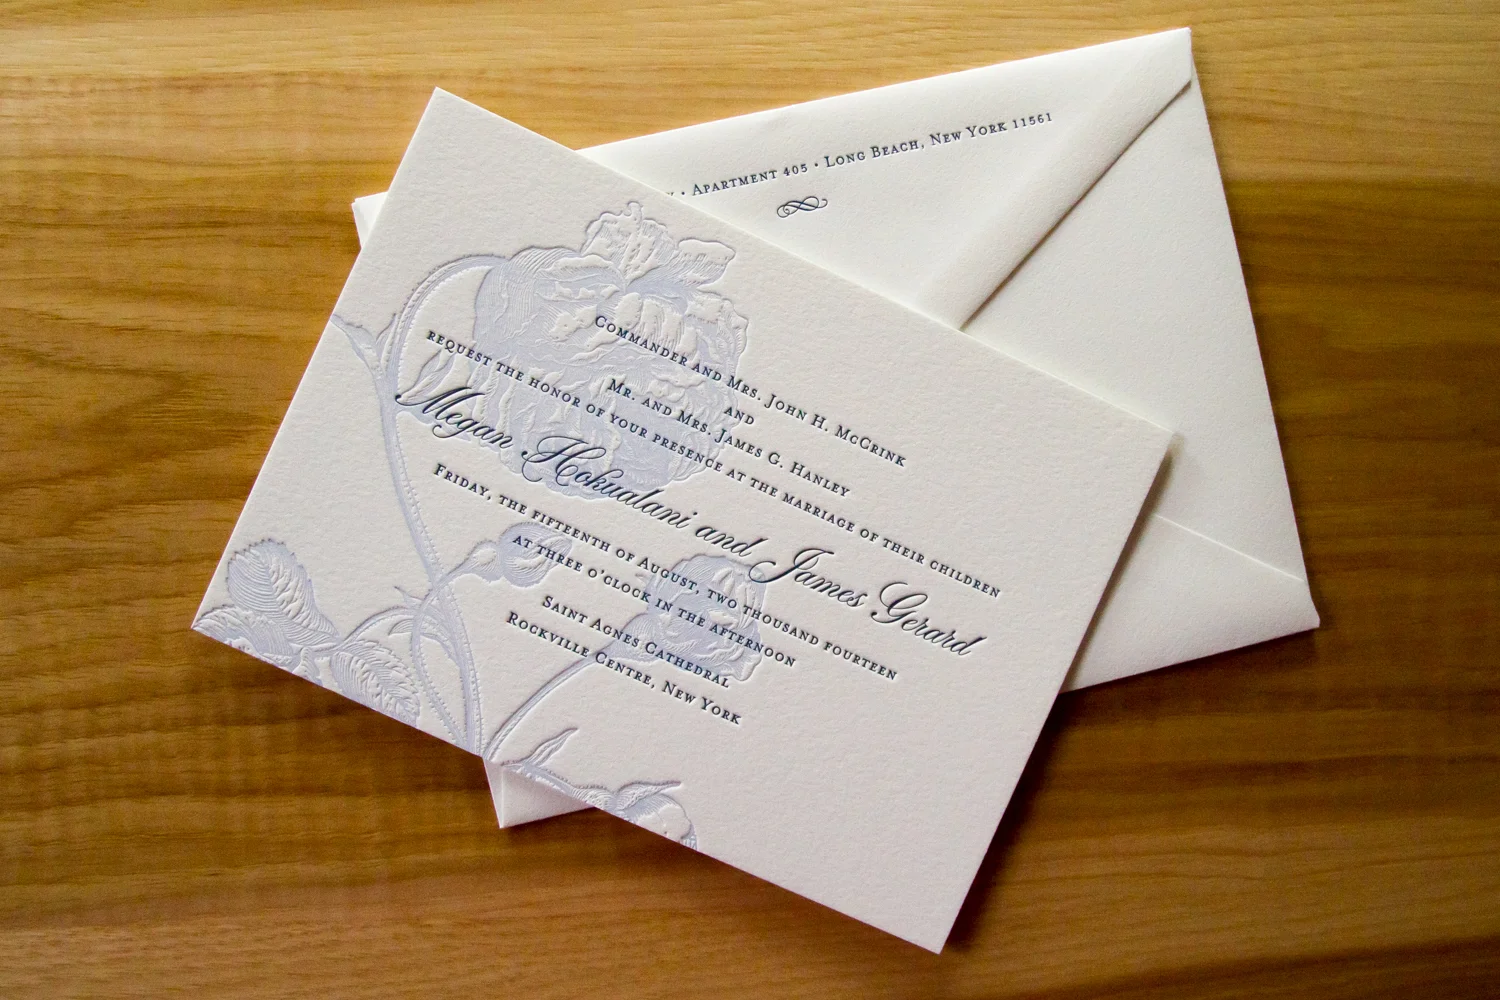 Apartment 405 · Long Beach, New York 11561
Commander and Mrs. John H. McCrink
and
Mr. and Mrs. James G. Hanley
request the honor of your presence at the marriage of their children
Megan Hokualani and James Gerard
Friday, the fifteenth of August, two thousand fourteen
at three o'clock in the afternoon
Saint Agnes Cathedral
Rockville Centre, New York